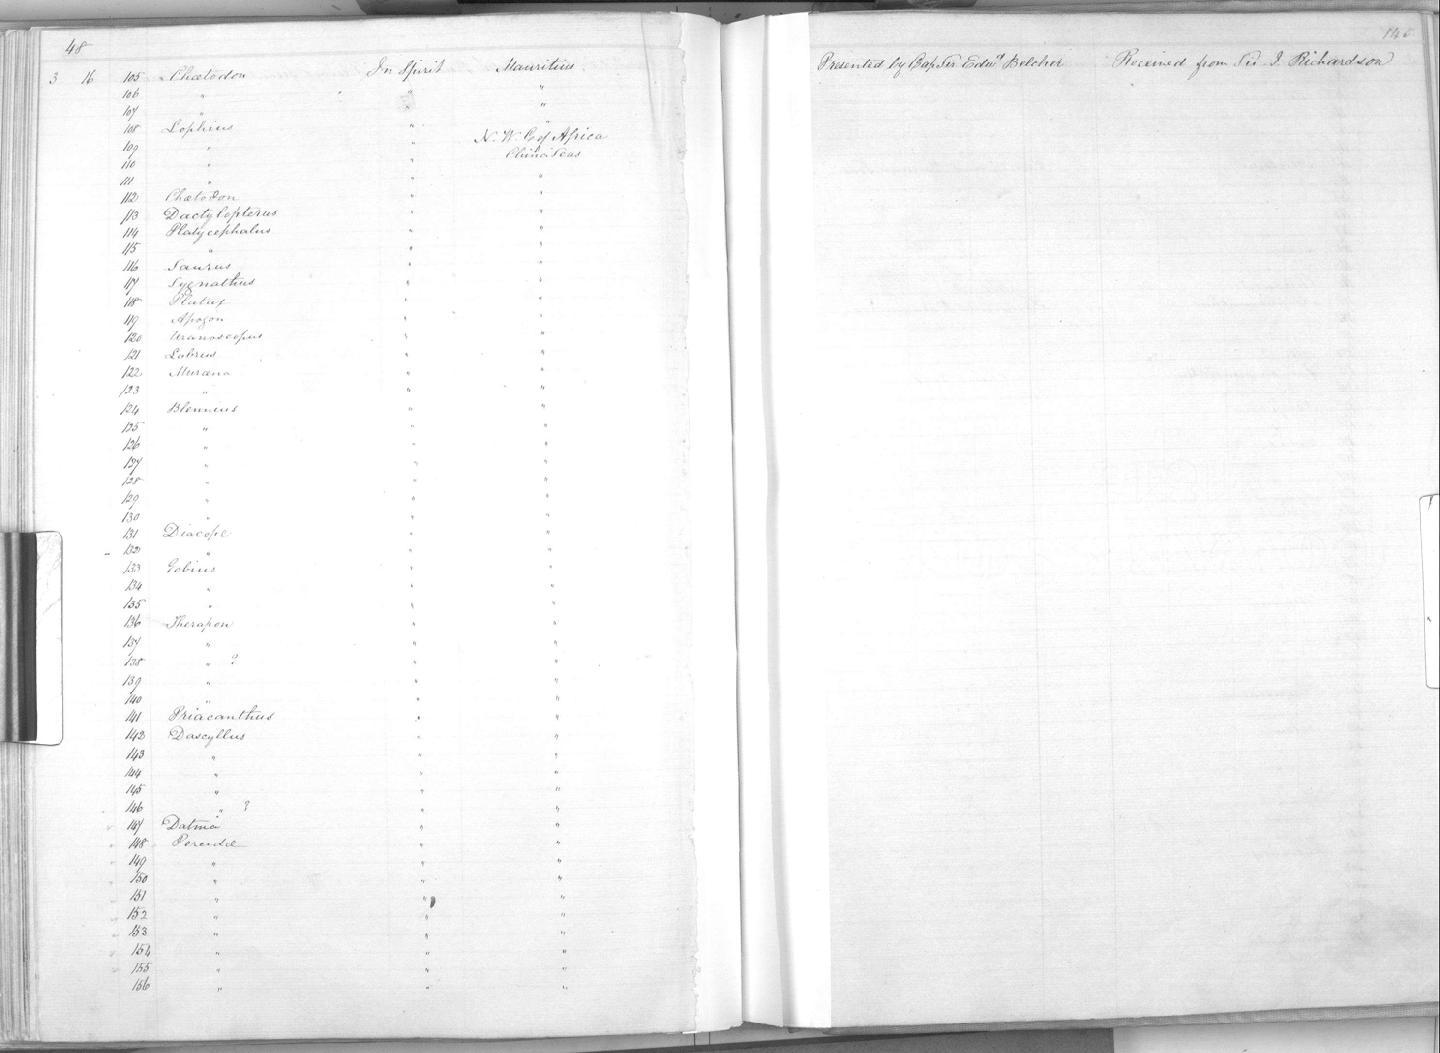 48
3 16 105 Chætodon In Spirit Mauritius Presented by Cap Sir Edwd Belcher Received from Sir J. Richardson
106 " " "
107 " " "
108 Lophius " "
109 " " N. W. C. of Africa
110 " " China Seas
111 " " "
112 Chætodon " "
113 Dactylopterus " "
114 Platycephalus " "
115 " " "
116 Saurus " "
117 Sygnathus " "
118 Platax " "
119 Apogon " "
120 Uranoscopus " "
121 Labrus " "
122 Muræna " "
123 " " "
124 Blennius " "
125 " " "
126 " " "
127 " " "
128 " " "
129 " " "
130 " " "
131 Diacope " "
132 " " "
133 Gobius " "
134 " " "
135 " " "
136 Therapon " "
137 " " "
138 " ? " "
139 " " "
140 " " "
141 Priacanthus " "
142 Dascyllus " "
143 " " "
144 " " "
145 " " "
146 " ? " "
147 Datnia " "
148 " "
149 " " "
150 " " "
151 " " "
152 " " "
153 " " "
154 " " "
155 " " "
156 " " "